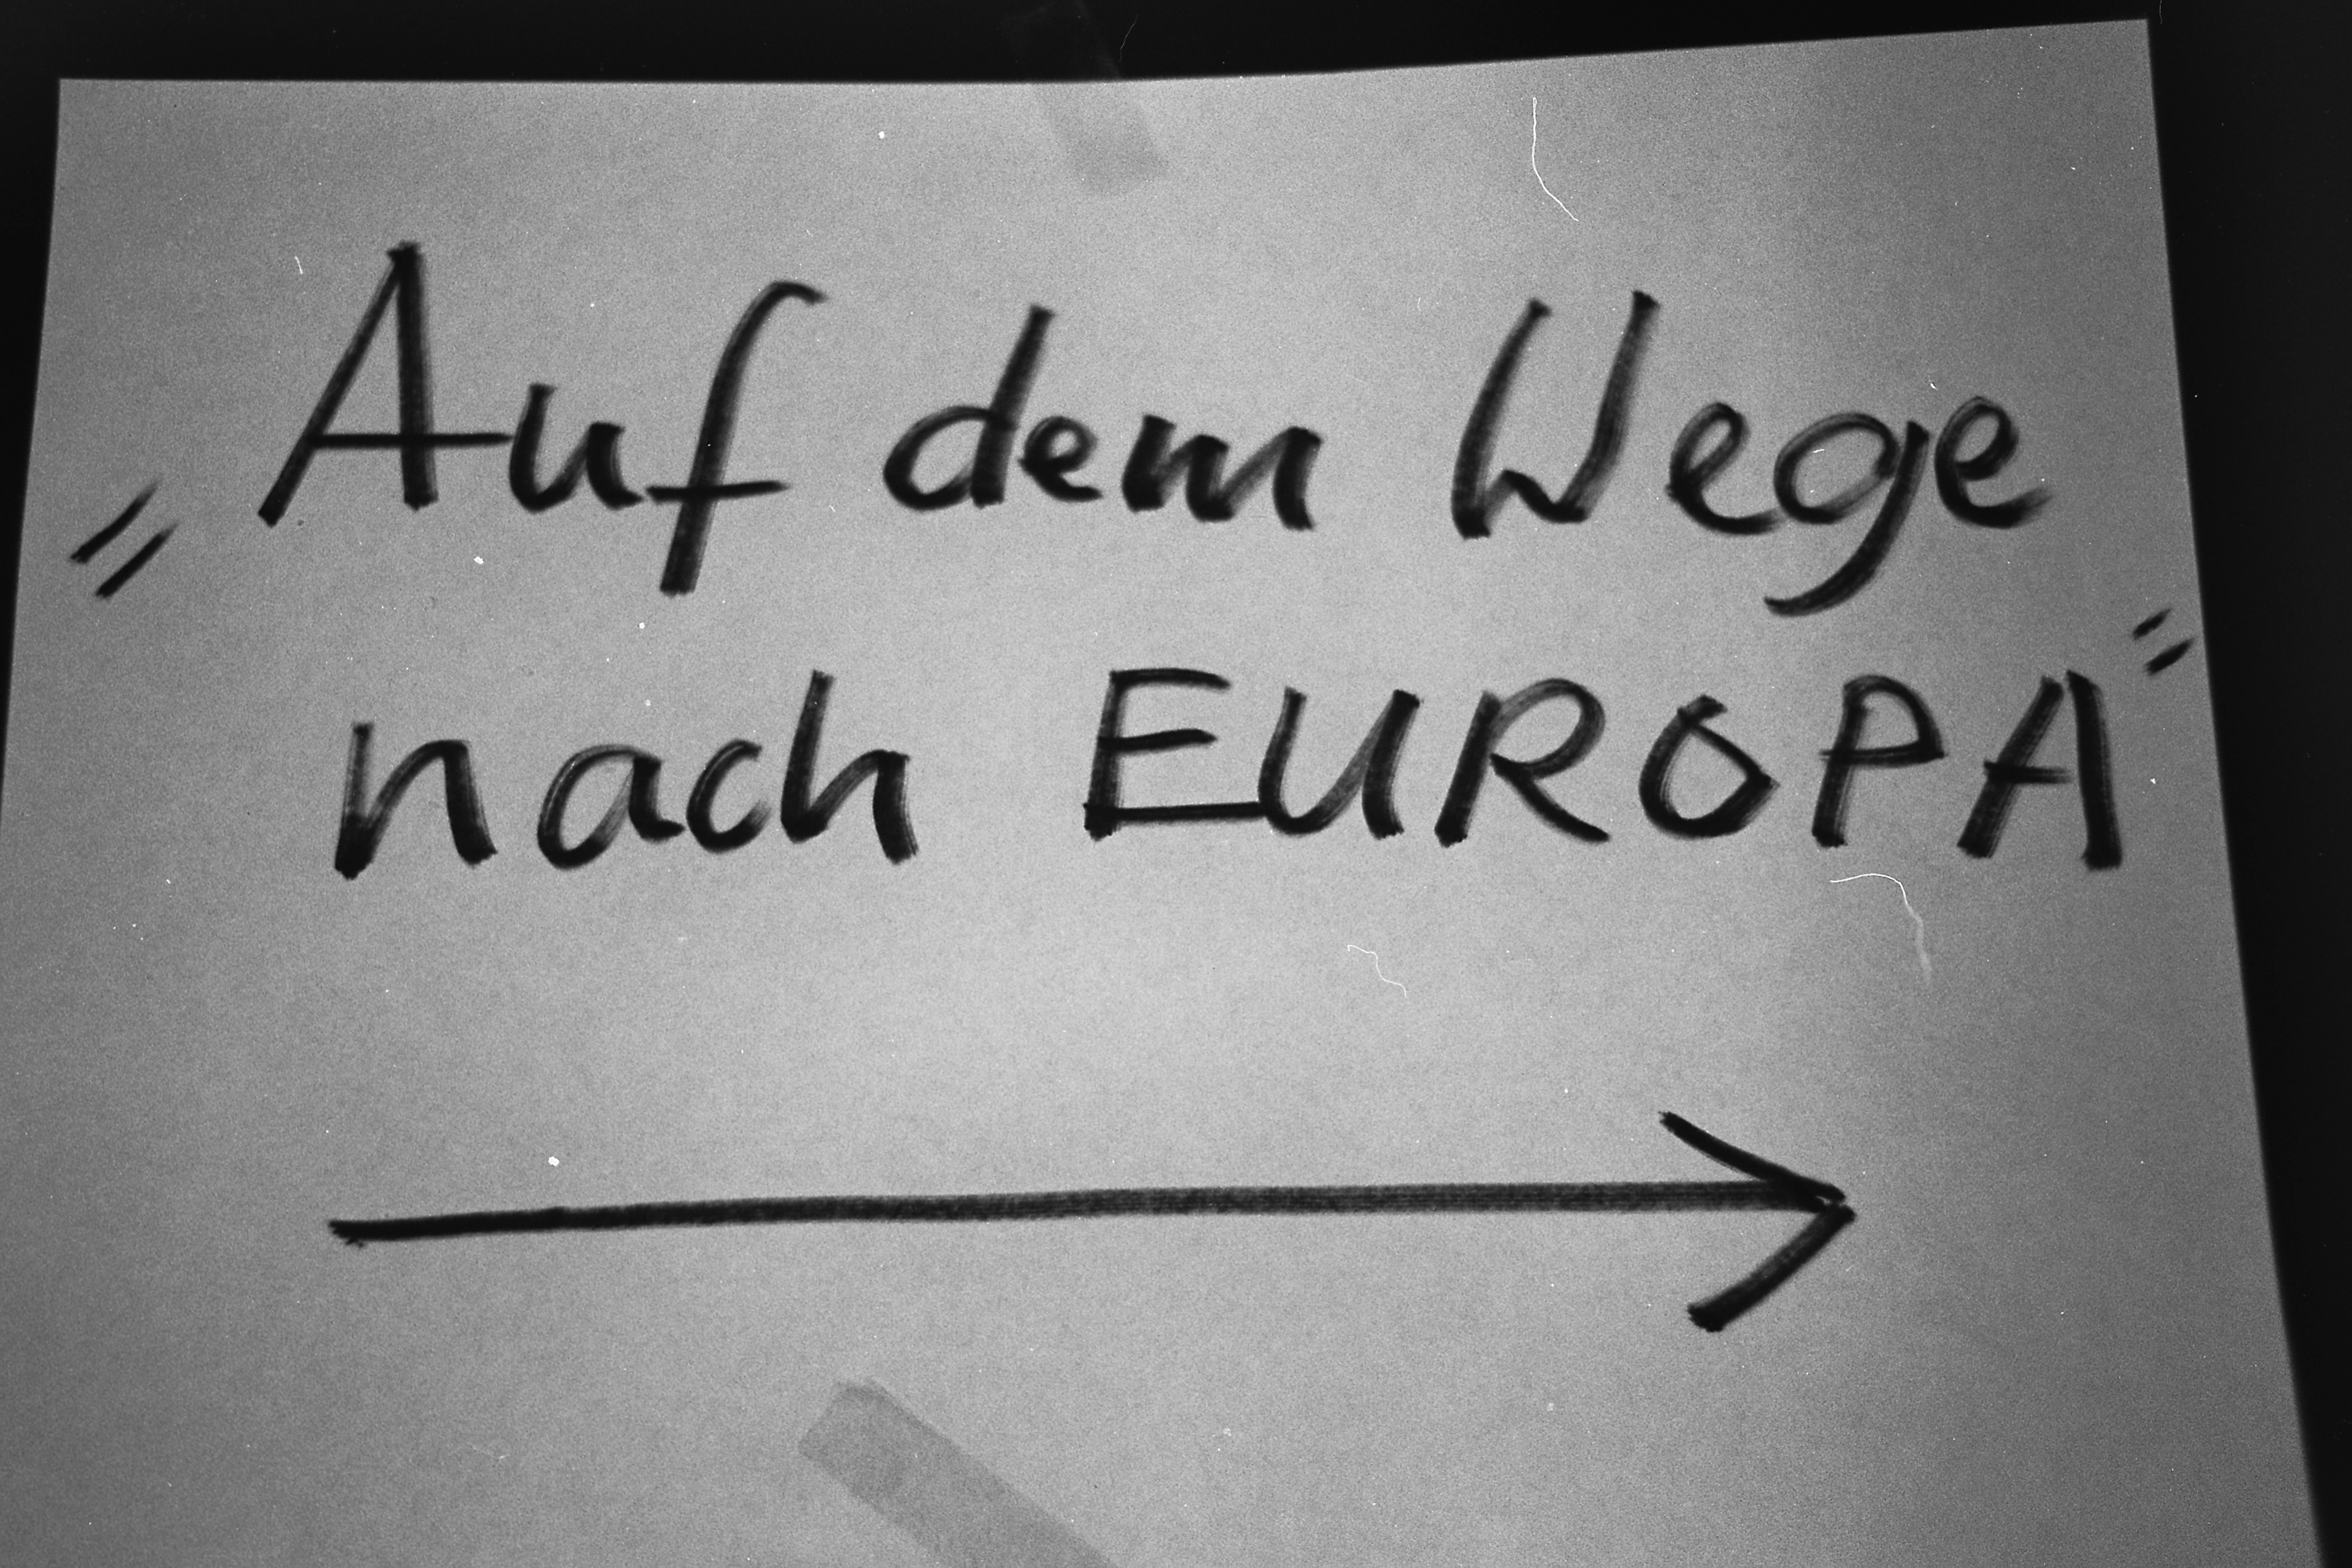 „Auf dem Wege
nach EUROPA"